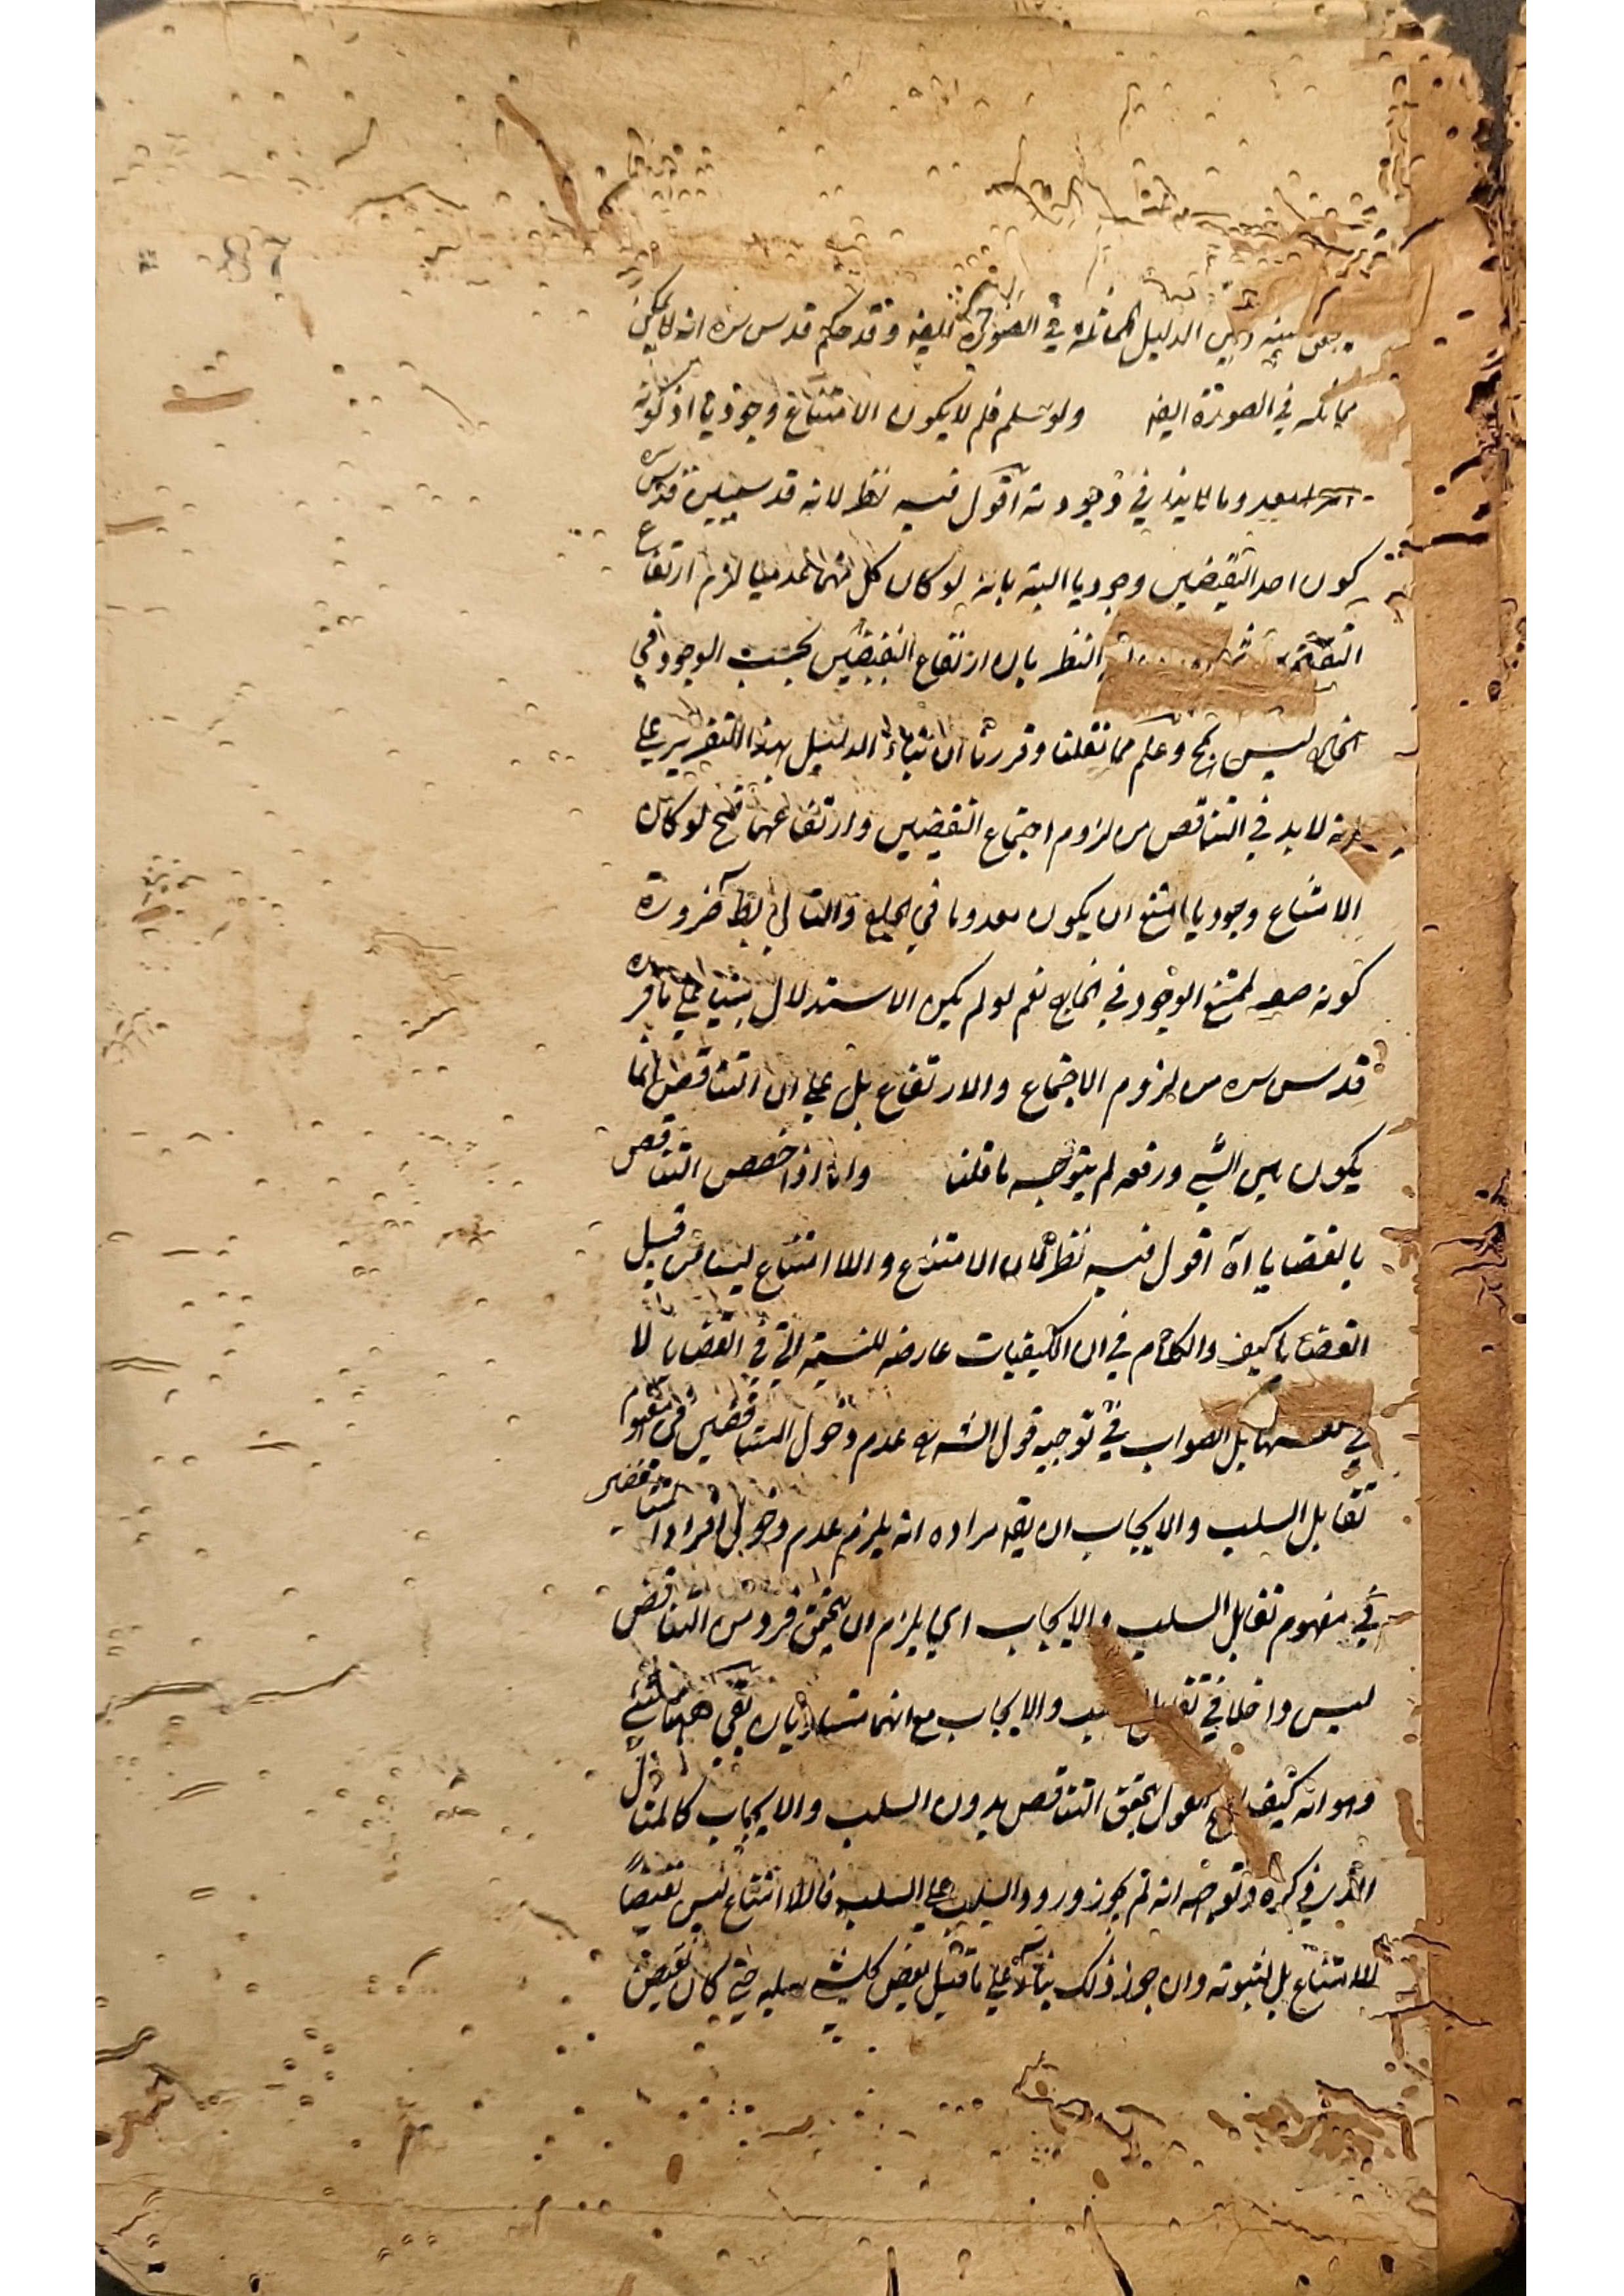 بينه وبين الدليل المماثلة في الصورة ايضه وقد حكم قدس سره انه لا يمكن
مماثله في الصورة ايضه ولو سلم فلم لا يكون الامتناع وجوديا اذ كونه
امرا معدوما لا ينافي وجوديته اقول فيه نظر لانه قد سبق قدس سره
كون احد النقيضين وجوديا البتة بانه لو كان كل منهما عدميا لزم ارتفاع
النقيضين النظر بان ارتفاع النقيضين بحسب الوجود في
الخارج ليس بمح وعلم مما نقلنا وقررنا ان بناء الدليل بهذا التقرير على
انه لا بد في التناقض من لزوم اجتماع النقيضين وارتفاعهما فح لو كان
الامتناع وجوديا امتنع ان يكون معدوما في الخارج والتالي بط ضرورة
كونه صفه لممتنع الوجود في الخارج نعم لو لم يكن الاستدلال مبنيا على ما قرره
قدس سره من لزوم الاجتماع والارتفاع بل على ان التناقض انما
يكون بين الشي ورفعه لم يتوجه ما قلنا واما اذا خصص التناقض
بالقضايا اه اقول فيه نظر لان الامتناع واللا امتناع ليسا من قبيل
القضايا كيف والكلام في ان الكيفيات عارضه للنسبة التي في القضايا لا
في نفسها بل الصواب في توجيه قول الش عدم دخول المتناقضين في مفهوم
تقابل السلب والايجاب ان يقه مراده انه يلزم عدم دخول افراد المتناقضين
في مفهوم تقابل السلب والايجاب اي يلزم ان يتحقق فرد من التناقض
ليس داخلا في تقابل السلب والايجاب مع انهما متساويان بقي ههنا شئ
وهو انه كيف القول بتحقق التناقض بدون السلب والايجاب كالمثال
الذي ذكره وتوجيه انه لم يجوز ورود السلب على السلب فاللا امتناع ليس نقيضا
للامتناع بل لثبوته وان جوز ذلك بناء على ما قيل نقيض كل شئ سلبه حتى كان نقيض